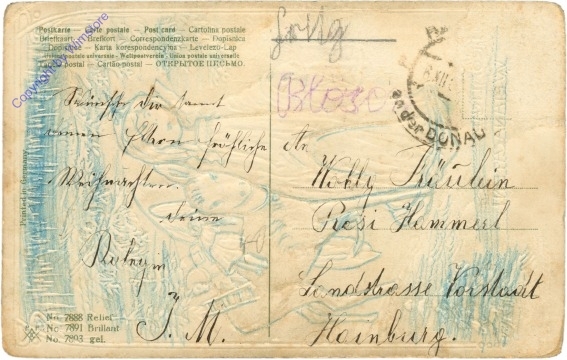 Postkarte — Carte postale — Post card — Cartolina postale
Briefkaart — Brefkort — Correspondenzkarte — Dopisnica
Dopisnice — Karta korespondencyjna — Levelező-Lap
Unione postale universale — Weltpostverein — Union postale universelle
postal — Cartão-postal — ОТКРЫТОЕ ПИСЬМО.
Copyright by Numstore
XII
an der DONAU
Wünsche dir samt
deinen Eltern fröhliche
Weihnachten.
deine
J. M.
An
Wohlg Fräulein
Resi Hammerl
Landstrasse Vorstadt
Hainburg.
Printed in Germany
No. 7888 Relief
No. 7891 Brillant
No. 7893 gel.